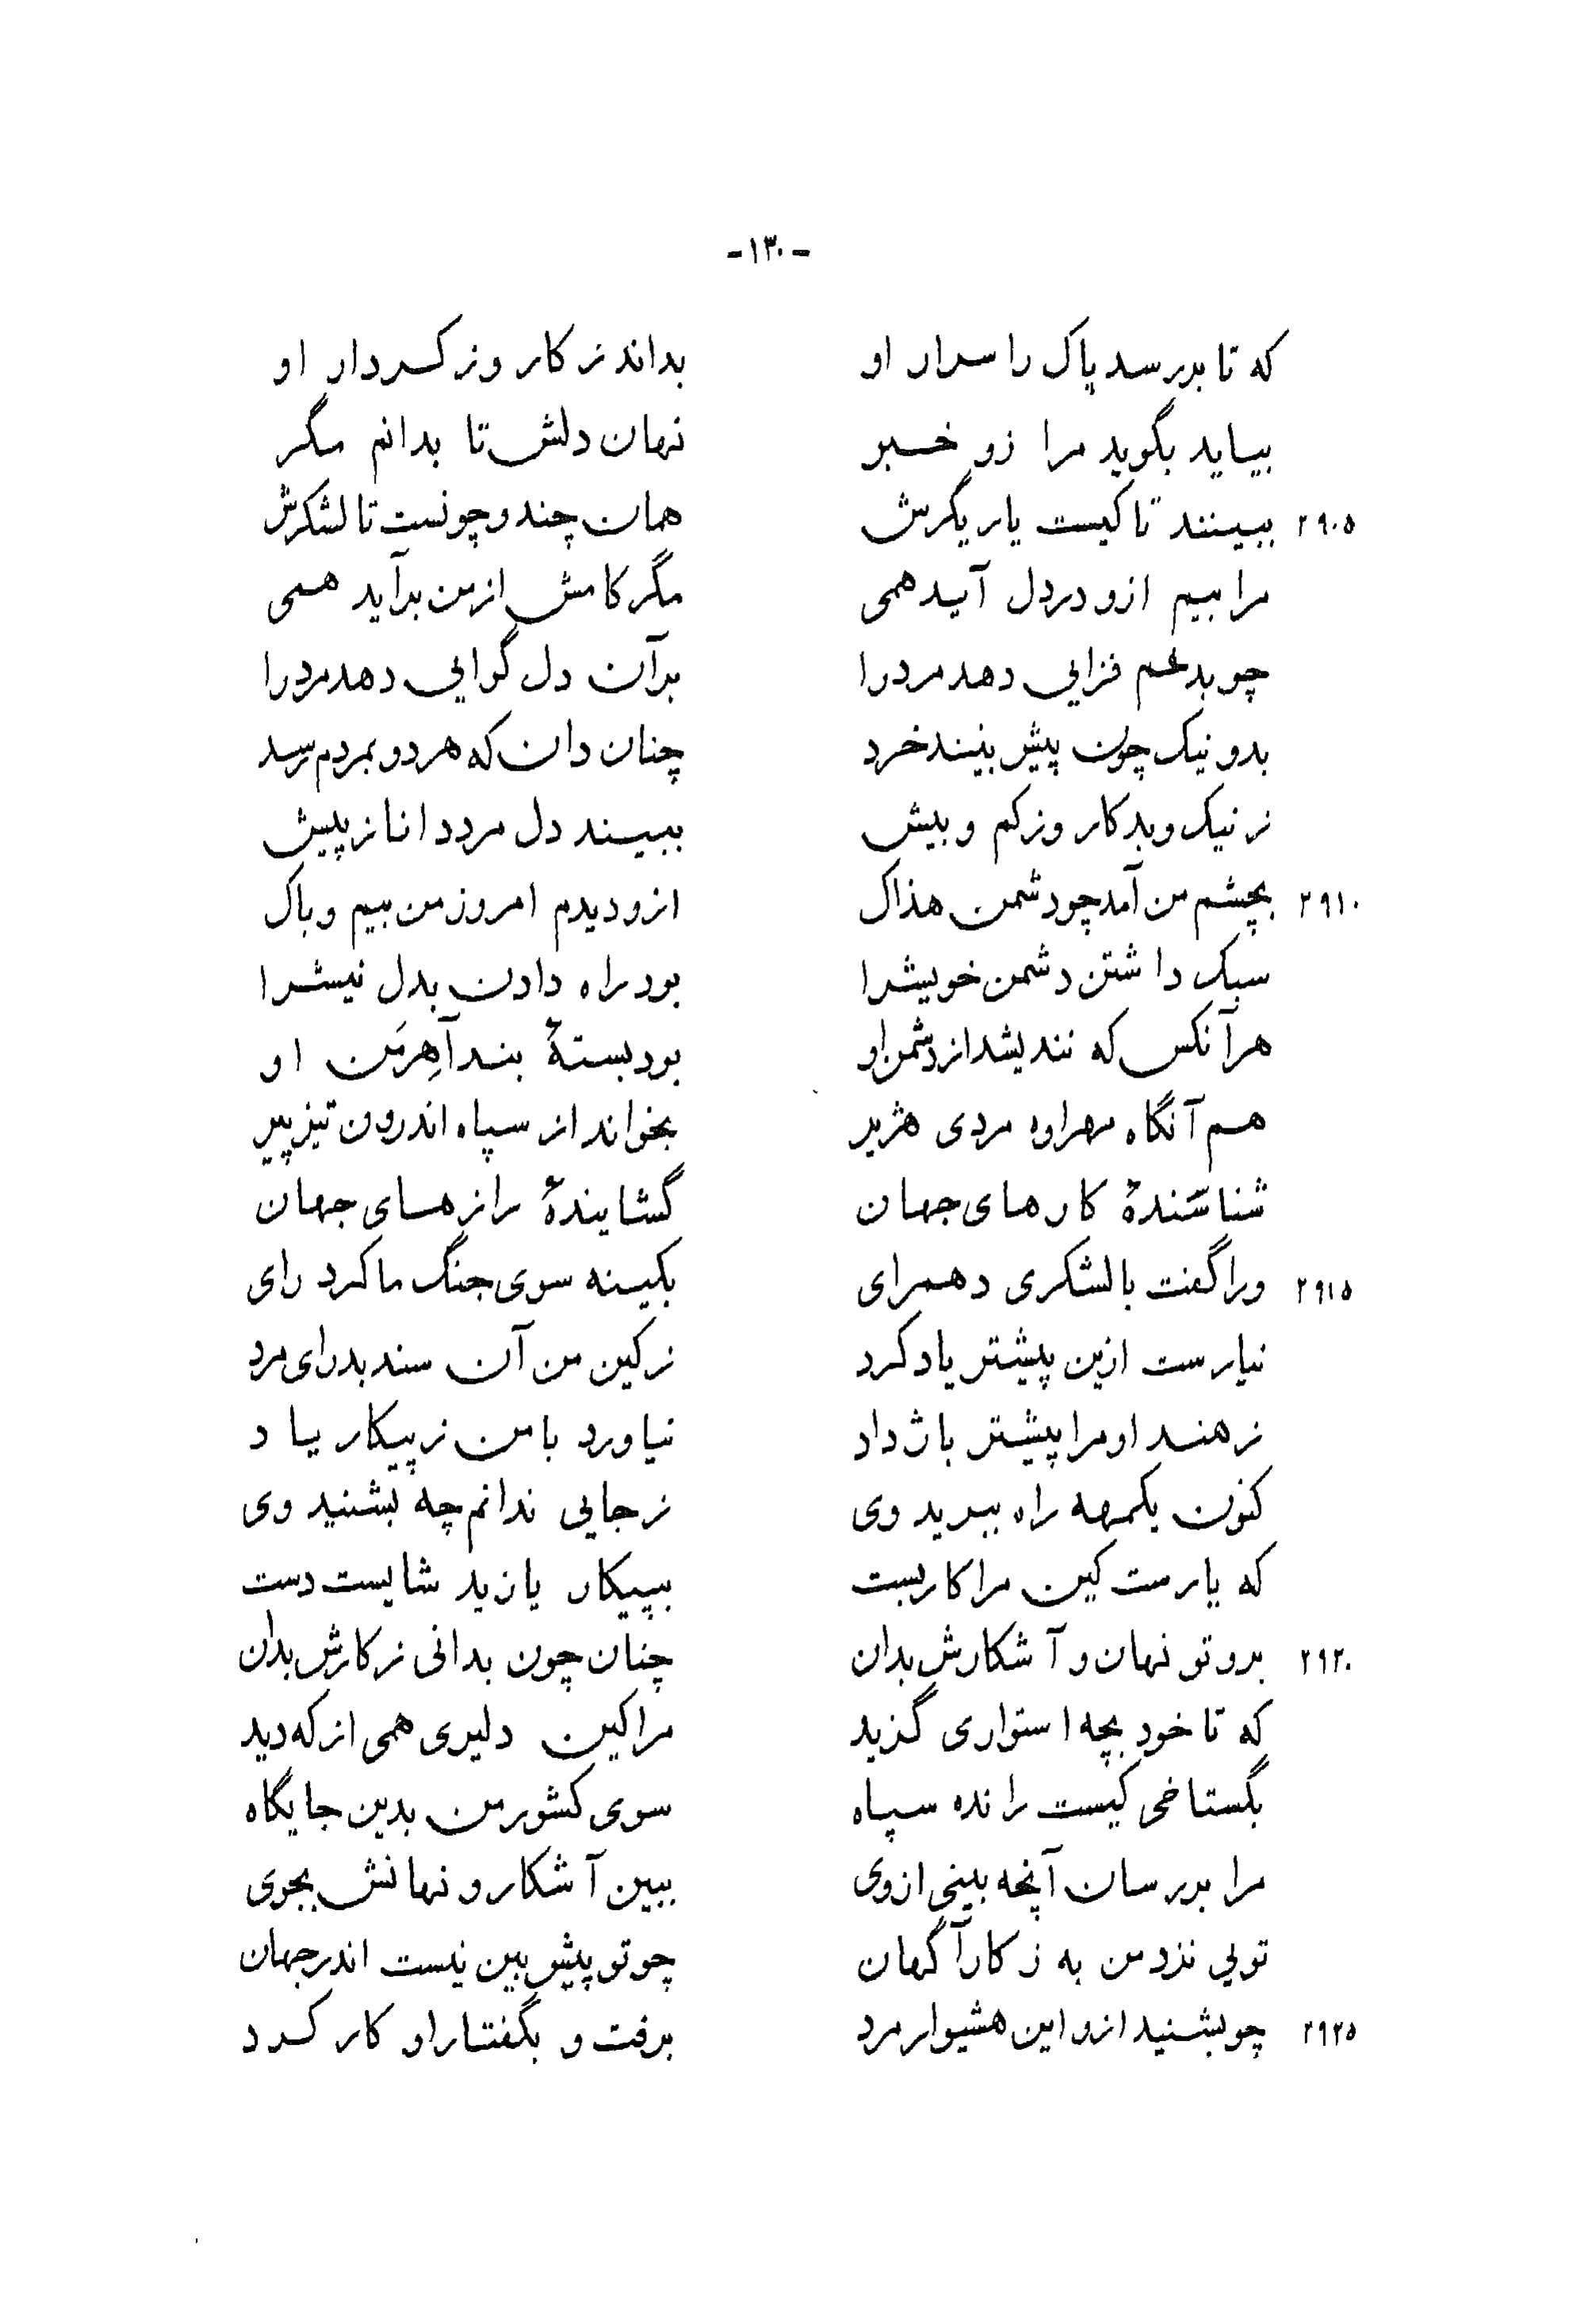 -۱۳۰-
که تا بررسد پاک راسرار او بداند ز کار وز کردار او
بیاید بگوید مرا زو خبر نهان دلش تا بدانم مگر
۲۹۰۵ ببینند تا کیست یاریگرش همان چند و چونست تا لشکرش
مرا بیم ازو در دل آید همی مگر کامش از من برآید همی
چو بد غم فزایی دهد مرد را بر آن دل گوایی دهد مرد را
بدو نیک چون پیش بیند خرد چنان دان که هر دو بمردم رسد
ز نیک و بد کار وز کم و بیش ببیند دل مرد دانا ز پیش
۲۹۱۰ بچشم من آمد چو دشمن هذاک ازو دیدم امروز من بیم و باک
سبک داشتن دشمن خویشرا بود راه دادن بدل نیشرا
هرآنکس که نندیشد از دشمن او بود بستهٔ بند آهِرمَن او
هم آنگاه مهراوه مردی هژیر بخواند از سپاه اندرون تیزویر
شناسندهٔ کارهای جهان گشایندهٔ رازهای جهان
۲۹۱۵ ورا گفت با لشکری دهمرای بکینه سوی جنگ ما کرد رای
نیارست ازین پیشتر یاد کرد ز کین من آن سند بدرای مرد
ز هند او مرا پیشتر باژ داد نیاورد با من ز پیکار یاد
کنون یکمهه راه ببرید وی ز جایی ندانم چه بشنید وی
که یارست کین مرا کار بست ببپیکار یازید شایست دست
۲۹۲۰ برو تو نهان و آشکارش بدان چنان چون بدانی ز کارش بدان
که تا خود بچه استواری گزید مرا کین دلیری همی از که دید
بگستاخی کیست رانده سپاه سوی کشور من بدین جایگاه
مرا بررسان آنچه بینی ازوی ببین آشکار و نهانش بجوی
تویی نزد من به ز کارآگهان چو تو پیش بین نیست اندر جهان
۲۹۲۵ چو بشنید ازو این هشیوار مرد برفت و بگفتار او کار کرد